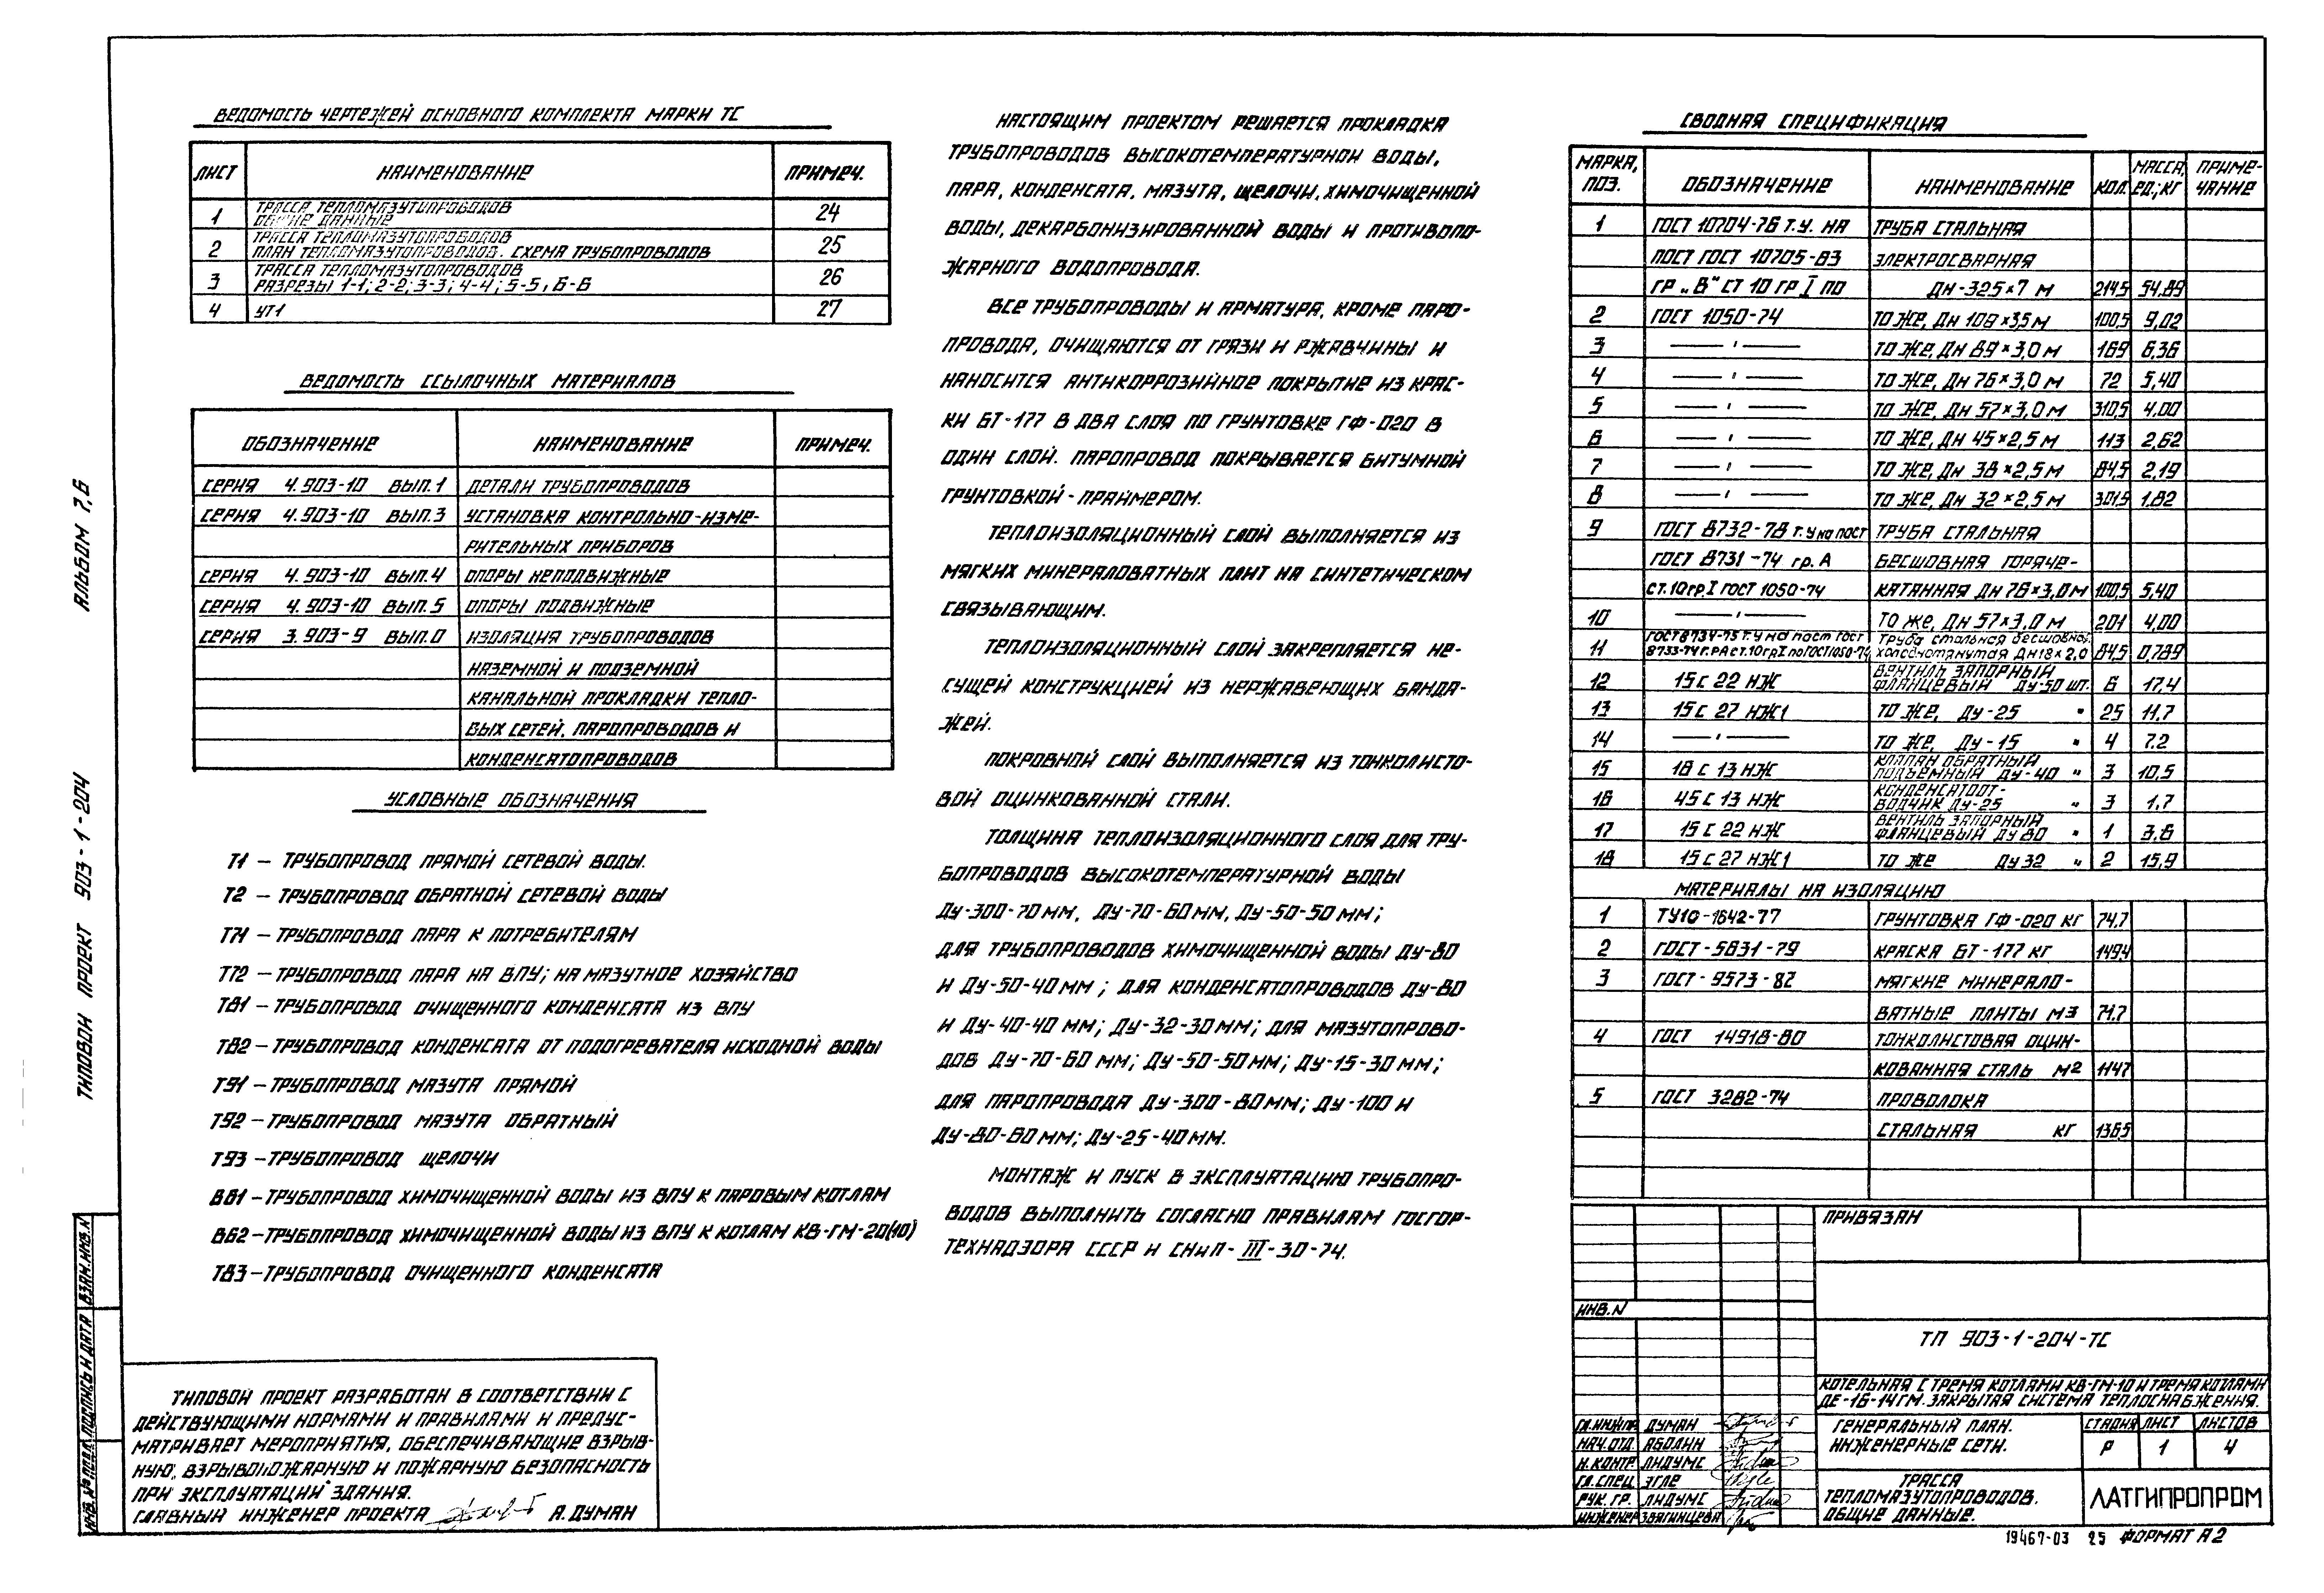 АЛЬБОМ 7,6
ТИПОВОЙ ПРОЕКТ 903-1-204
ВЕДОМОСТЬ ЧЕРТЕЖЕЙ ОСНОВНОГО КОМПЛЕКТА МАРКИ ТС
ЛИСТ НАИМЕНОВАНИЕ ПРИМЕЧ.
1 ТРАССА ТЕПЛОМАЗУТОПРОВОДОВ 24
ОБЩИЕ ДАННЫЕ
2 ТРАССА ТЕПЛОМАЗУТОПРОВОДОВ 25
ПЛАН ТЕПЛОМАЗУТОПРОВОДОВ. СХЕМА ТРУБОПРОВОДОВ
3 ТРАССА ТЕПЛОМАЗУТОПРОВОДОВ 26
РАЗРЕЗЫ 1-1; 2-2; 3-3; 4-4; 5-5; 6-6
4 УТ1 27
ВЕДОМОСТЬ ССЫЛОЧНЫХ МАТЕРИАЛОВ
ОБОЗНАЧЕНИЕ НАИМЕНОВАНИЕ ПРИМЕЧ.
СЕРИЯ 4.903-10 ВЫП.1 ДЕТАЛИ ТРУБОПРОВОДОВ
СЕРИЯ 4.903-10 ВЫП.3 УСТАНОВКА КОНТРОЛЬНО-ИЗМЕ-
РИТЕЛЬНЫХ ПРИБОРОВ
СЕРИЯ 4.903-10 ВЫП.4 ОПОРЫ НЕПОДВИЖНЫЕ
СЕРИЯ 4.903-10 ВЫП.5 ОПОРЫ ПОДВИЖНЫЕ
СЕРИЯ 3.903-9 ВЫП.0 ИЗОЛЯЦИЯ ТРУБОПРОВОДОВ
НАЗЕМНОЙ И ПОДЗЕМНОЙ
КАНАЛЬНОЙ ПРОКЛАДКИ ТЕПЛО-
ВЫХ СЕТЕЙ, ПАРОПРОВОДОВ И
КОНДЕНСАТОПРОВОДОВ
УСЛОВНЫЕ ОБОЗНАЧЕНИЯ
Т1 – ТРУБОПРОВОД ПРЯМОЙ СЕТЕВОЙ ВОДЫ.
Т2 – ТРУБОПРОВОД ОБРАТНОЙ СЕТЕВОЙ ВОДЫ
Т71 – ТРУБОПРОВОД ПАРА К ПОТРЕБИТЕЛЯМ
Т72 – ТРУБОПРОВОД ПАРА НА ВПУ; НА МАЗУТНОЕ ХОЗЯЙСТВО
Т81 – ТРУБОПРОВОД ОЧИЩЕННОГО КОНДЕНСАТА ИЗ ВПУ
Т82 – ТРУБОПРОВОД КОНДЕНСАТА ОТ ПОДОГРЕВАТЕЛЯ ИСХОДНОЙ ВОДЫ
Т91 – ТРУБОПРОВОД МАЗУТА ПРЯМОЙ
Т92 – ТРУБОПРОВОД МАЗУТА ОБРАТНЫЙ
Т93 – ТРУБОПРОВОД ЩЕЛОЧИ
В61 – ТРУБОПРОВОД ХИМОЧИЩЕННОЙ ВОДЫ ИЗ ВПУ К ПАРОВЫМ КОТЛАМ
В62 – ТРУБОПРОВОД ХИМОЧИЩЕННОЙ ВОДЫ ИЗ ВПУ К КОТЛАМ КВ-ГМ-20(10)
Т83 – ТРУБОПРОВОД ОЧИЩЕННОГО КОНДЕНСАТА
ТИПОВОЙ ПРОЕКТ РАЗРАБОТАН В СООТВЕТСТВИИ С
ДЕЙСТВУЮЩИМИ НОРМАМИ И ПРАВИЛАМИ И ПРЕДУС-
МАТРИВАЕТ МЕРОПРИЯТИЯ, ОБЕСПЕЧИВАЮЩИЕ ВЗРЫВ-
НУЮ, ВЗРЫВОПОЖАРНУЮ И ПОЖАРНУЮ БЕЗОПАСНОСТЬ
ПРИ ЭКСПЛУАТАЦИИ ЗДАНИЯ.
ГЛАВНЫЙ ИНЖЕНЕР ПРОЕКТА А. ДУМАН
НАСТОЯЩИМ ПРОЕКТОМ РЕШАЕТСЯ ПРОКЛАДКА
ТРУБОПРОВОДОВ ВЫСОКОТЕМПЕРАТУРНОЙ ВОДЫ,
ПАРА, КОНДЕНСАТА, МАЗУТА, ЩЕЛОЧИ, ХИМОЧИЩЕННОЙ
ВОДЫ, ДЕКАРБОНИЗИРОВАННОЙ ВОДЫ И ПРОТИВОПО-
ЖАРНОГО ВОДОПРОВОДА.
ВСЕ ТРУБОПРОВОДЫ И АРМАТУРА, КРОМЕ ПАРО-
ПРОВОДА, ОЧИЩАЮТСЯ ОТ ГРЯЗИ И РЖАВЧИНЫ И
НАНОСИТСЯ АНТИКОРРОЗИЙНОЕ ПОКРЫТИЕ ИЗ КРАС-
КИ БТ-177 В ДВА СЛОЯ ПО ГРУНТОВКЕ ГФ-020 В
ОДИН СЛОЙ. ПАРОПРОВОД ПОКРЫВАЕТСЯ БИТУМНОЙ
ГРУНТОВКОЙ - ПРАЙМЕРОМ.
ТЕПЛОИЗОЛЯЦИОННЫЙ СЛОЙ ВЫПОЛНЯЕТСЯ ИЗ
МЯГКИХ МИНЕРАЛОВАТНЫХ ПЛИТ НА СИНТЕТИЧЕСКОМ
СВЯЗЫВАЮЩИМ.
ТЕПЛОИЗОЛЯЦИОННЫЙ СЛОЙ ЗАКРЕПЛЯЕТСЯ НЕ-
СУЩЕЙ КОНСТРУКЦИЕЙ ИЗ НЕРЖАВЕЮЩИХ БАНДА-
ЖЕЙ.
ПОКРОВНОЙ СЛОЙ ВЫПОЛНЯЕТСЯ ИЗ ТОНКОЛИСТО-
ВОЙ ОЦИНКОВАННОЙ СТАЛИ.
ТОЛЩИНА ТЕПЛОИЗОЛЯЦИОННОГО СЛОЯ ДЛЯ ТРУ-
БОПРОВОДОВ ВЫСОКОТЕМПЕРАТУРНОЙ ВОДЫ
ДУ-300-70 ММ, ДУ-70-60 ММ, ДУ-50-50 ММ;
ДЛЯ ТРУБОПРОВОДОВ ХИМОЧИЩЕННОЙ ВОДЫ ДУ-80
И ДУ-50-40 ММ; ДЛЯ КОНДЕНСАТОПРОВОДОВ ДУ-80
И ДУ-40-40 ММ; ДУ-32-30 ММ; ДЛЯ МАЗУТОПРОВО-
ДОВ ДУ-70-60 ММ; ДУ-50-50 ММ; ДУ-15-30 ММ;
ДЛЯ ПАРОПРОВОДА ДУ-300-80 ММ; ДУ-100 И
ДУ-80-80 ММ; ДУ-25-40 ММ.
МОНТАЖ И ПУСК В ЭКСПЛУАТАЦИЮ ТРУБОПРО-
ВОДОВ ВЫПОЛНИТЬ СОГЛАСНО ПРАВИЛАМ ГОСГОР-
ТЕХНАДЗОРА СССР И СНиП-III-30-74.
СВОДНАЯ СПЕЦИФИКАЦИЯ
МАРКА, ПОЗ. ОБОЗНАЧЕНИЕ НАИМЕНОВАНИЕ КОЛ. МАССА ЕД., КГ ПРИМЕ-ЧАНИЕ
1 ГОСТ 10704-76 Т.У. НА ТРУБА СТАЛЬНАЯ
ПОСТ ГОСТ 10705-83 ЭЛЕКТРОСВАРНАЯ
ГР „В" СТ 10 ГР I ПО ДН-325×7 М 2145 54,89
2 ГОСТ 1050-74 ТО ЖЕ, ДН 108×3,5 М 100,5 9,02
3 ТО ЖЕ, ДН 89×3,0 М 169 6,36
4 ТО ЖЕ, ДН 76×3,0 М 72 5,40
5 ТО ЖЕ, ДН 57×3,0 М 310,5 4.00
6 ТО ЖЕ, ДН 45×2,5 М 113 2,62
7 ТО ЖЕ, ДН 38×2,5 М 84,5 2,19
8 ТО ЖЕ, ДН 32×2,5 М 301,5 1.82
9 ГОСТ 8732-78 Т.У на пост ТРУБА СТАЛЬНАЯ
ГОСТ 8731-74 гр. А БЕСШОВНАЯ ГОРЯЧЕ-
СТ.10гр.I ГОСТ 1050-74 КАТАННАЯ ДН 76×3,0 М 100,5 5,40
10 ТО же, ДН 57×3,0 М 201 4,00
11 ГОСТ 8734-75 Т.У на пост ГОСТ Труба стальная бесшовная
8733-74 Г.РА ст.10гр.I по ГОСТ1050-74 холоднотянутая ДН18×2,0 84,5 0,789
12 15с 22 НЖ ВЕНТИЛЬ ЗАПОРНЫЙ
ФЛАНЦЕВЫЙ ДУ-50 шт. 6 17,4
13 15с 27 НЖ1 ТО ЖЕ, ДУ-25 " 25 11,7
14 ТО ЖЕ, ДУ-15 " 4 7.2
15 16 с 13 НЖ КЛАПАН ОБРАТНЫЙ
ПОДЪЕМНЫЙ ДУ-40 " 3 10,5
16 45 с 13 НЖ КОНДЕНСАТООТ-
ВОДЧИК ДУ-25 " 3 1,7
17 15 с 22 НЖ ВЕНТИЛЬ ЗАПОРНЫЙ
ФЛАНЦЕВЫЙ ДУ 80 " 1 3,6
18 15 с 27 НЖ1 ТО ЖЕ ДУ 32 " 2 15,9
МАТЕРИАЛЫ НА ИЗОЛЯЦИЮ
1 ТУ10-1642-77 ГРУНТОВКА ГФ-020 КГ 74.7
2 ГОСТ-5631-79 КРАСКА БТ-177 КГ 149,4
3 ГОСТ-9573-82 МЯГКИЕ МИНЕРАЛО-
ВАТНЫЕ ПЛИТЫ М3 71.7
4 ГОСТ 14918-80 ТОНКОЛИСТОВАЯ ОЦИН-
КОВАННАЯ СТАЛЬ М2 1147
5 ГОСТ 3282-74 ПРОВОЛОКА
СТАЛЬНАЯ КГ 136,5
ПРИВЯЗАН
ИНВ. N
ТП 903-1-204-ТС
КОТЕЛЬНАЯ С ТРЕМЯ КОТЛАМИ КВ-ГМ-10 И ТРЕМЯ КОТЛАМИ
ДЕ-16-14ГМ. ЗАКРЫТАЯ СИСТЕМА ТЕПЛОСНАБЖЕНИЯ.
ГЛ.ИНЖ.ПР. ДУМАН
НАЧ.ОТД. АБОЛИН
Н.КОНТР. ЛИДУМС
ГЛ.СПЕЦ. ЭГЛЕ
РУК. ГР. ЛИДУМС
ИНЖЕНЕР ЗВЯГИНЦЕВА
ГЕНЕРАЛЬНЫЙ ПЛАН.
ИНЖЕНЕРНЫЕ СЕТИ.
СТАДИЯ ЛИСТ ЛИСТОВ
Р 1 4
ТРАССА
ТЕПЛОМАЗУТОПРОВОДОВ.
ОБЩИЕ ДАННЫЕ.
ЛАТГИПРОПРОМ
19467-03 25 ФОРМАТ А2
ВЗАМ. ИНВ. N
ПОДПИСЬ И ДАТА
ИНВ. № ПОДЛ.